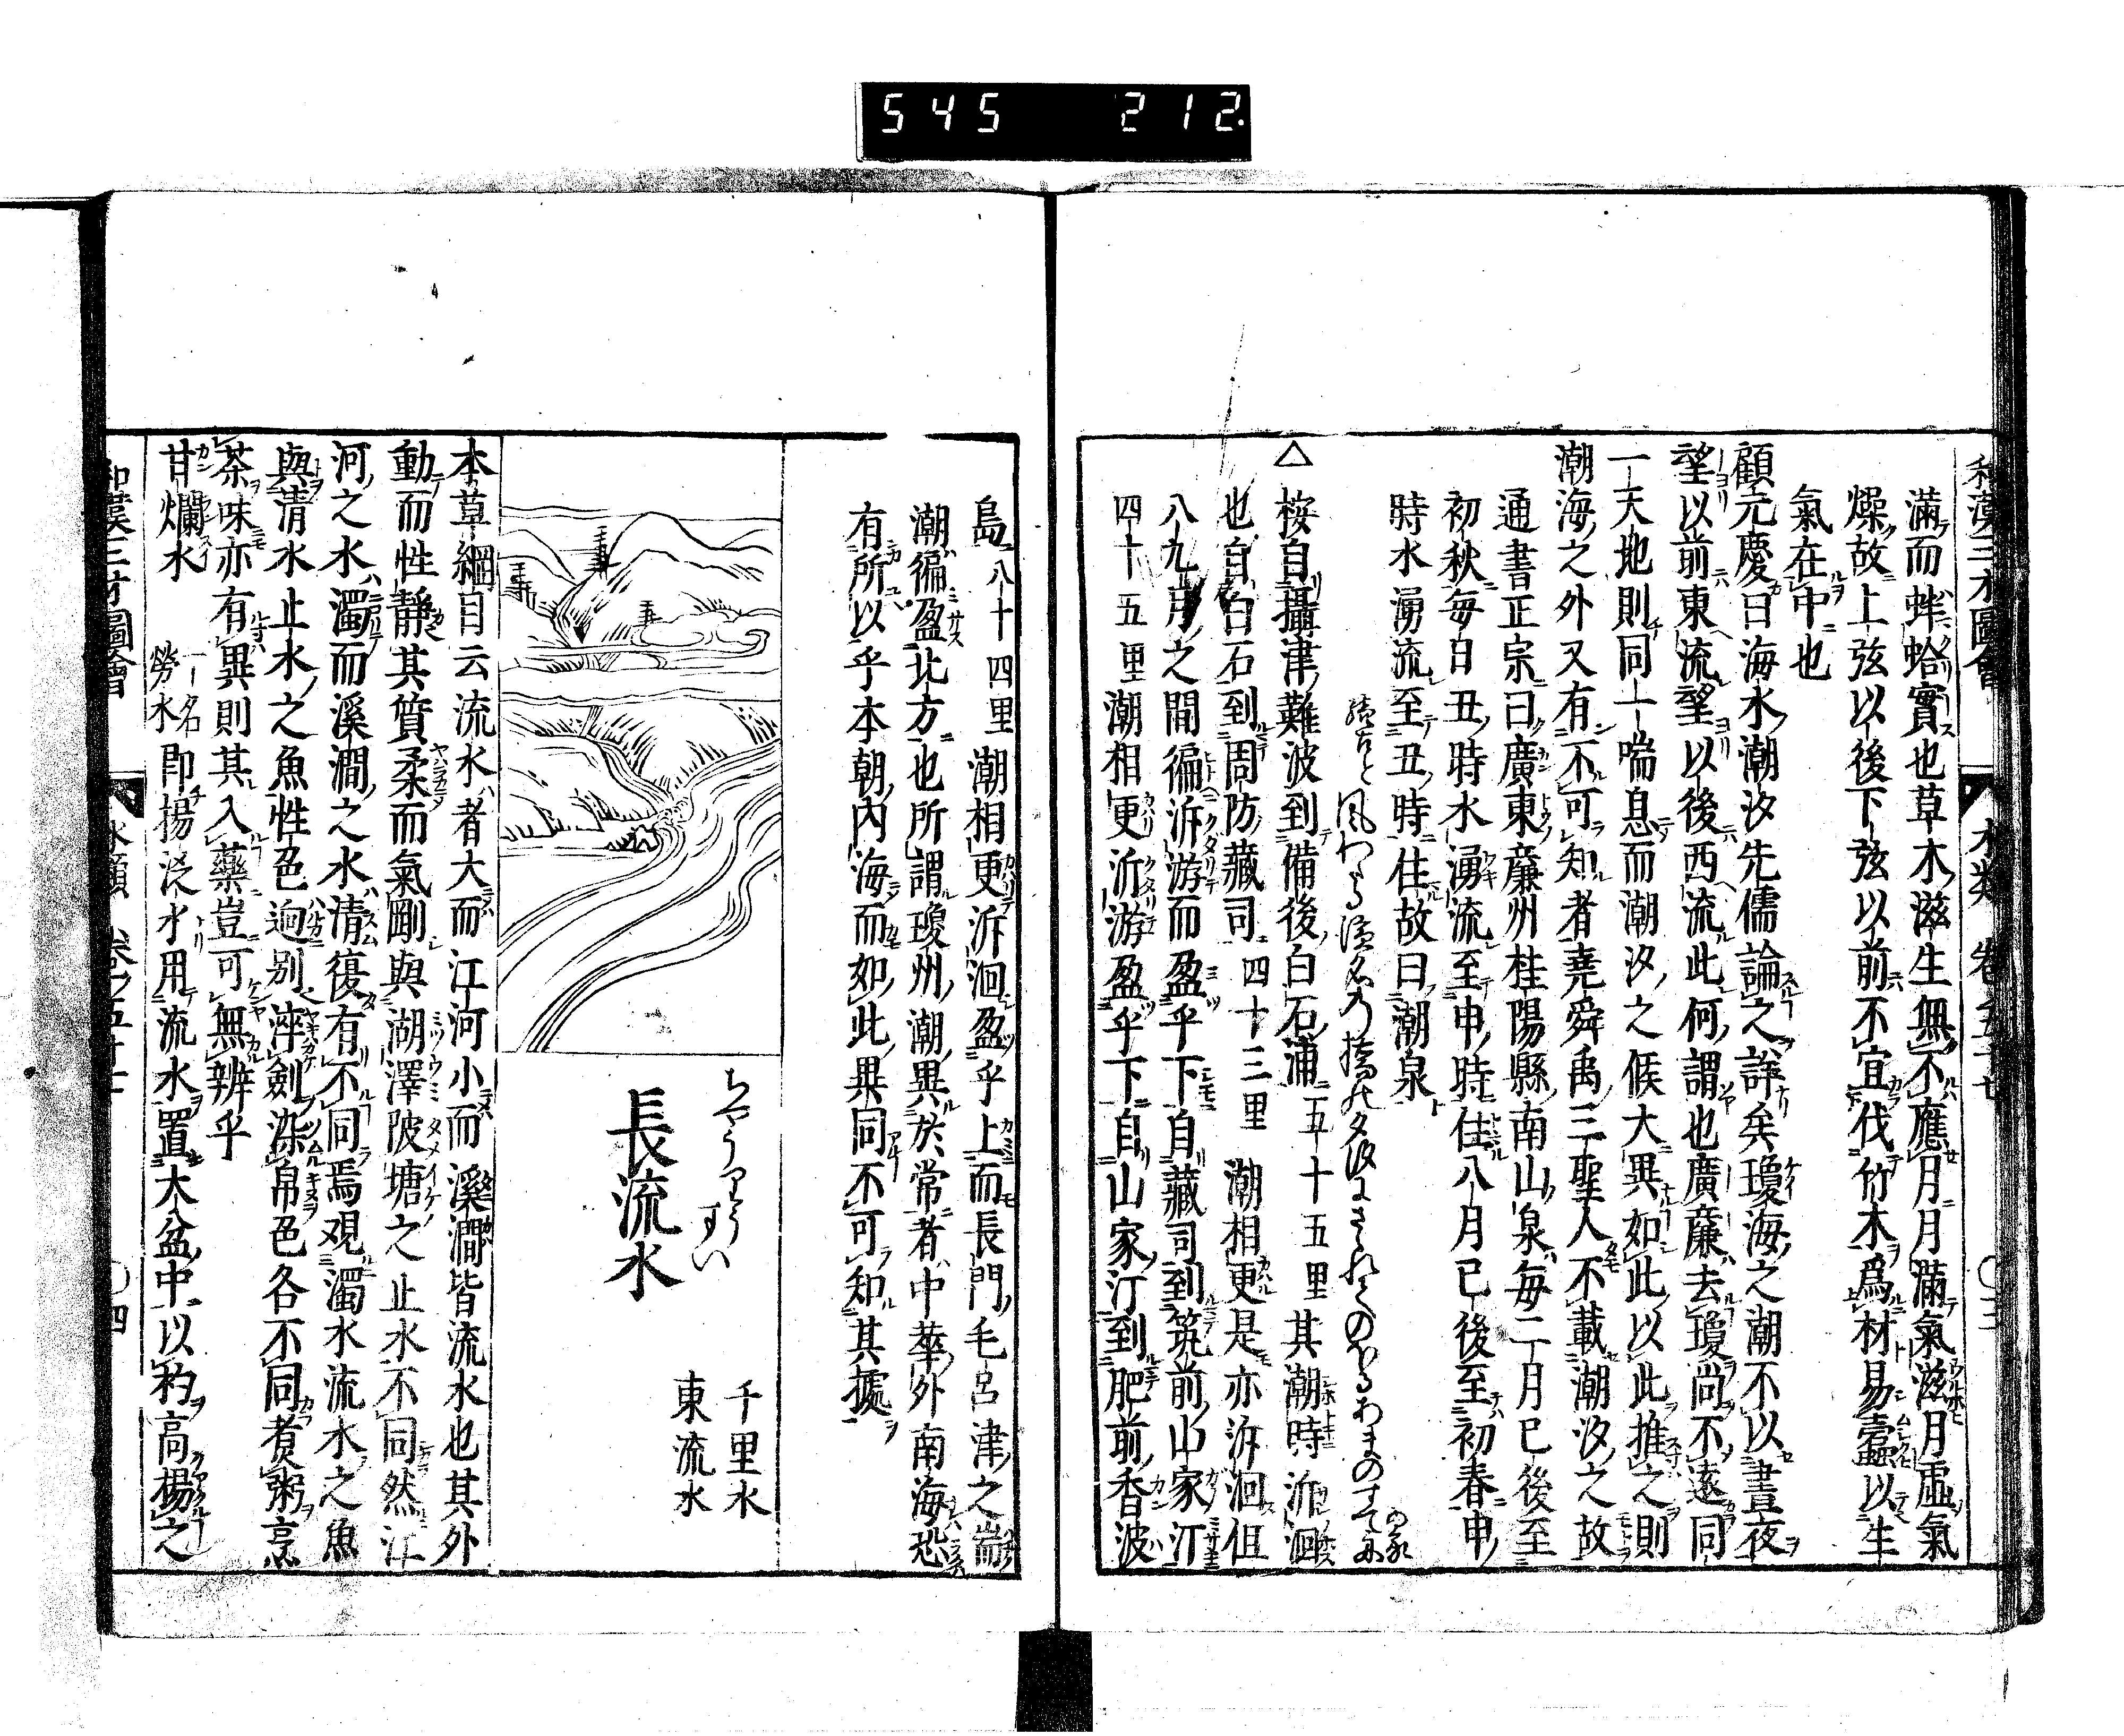 545 212
和漢三才圖會 水類 卷之五十七 〇三
滿而蚌蛤實也草木滋生無不應月月滿氣滋月虛氣
燥故上弦以後下弦以前不宜伐竹木爲材易蠹以生
氣在中也
顧元慶曰海水潮汐先儒論之詳矣瓊海之潮不以晝夜
望以前東流望以後西流此何謂也廣廉去瓊尚不遠同
一天地則同一喘息而潮汐之候大異如此以此推之則
潮海之外又有不可知者堯舜禹三聖人不載潮汐之故
通書正宗曰廣東廉州桂陽縣南山泉每二月巳後至
初秋每日丑時水湧流至申時住八月已後至初春申
時水湧流至丑時住故曰潮泉
風わたる濱名の橋の夕汐にさされてのぼるあまのすて舟
△ 按自攝津難波到備後白石浦五十五里其潮時泝洄
也自白石到周防藏司四十三里 潮相更是亦泝洄但
八九月之間徧泝游而盈乎下自藏司到筑前山家汀
四十五里潮相更泝游盈乎下自山家汀到肥前香波
島八十四里潮相更泝洄盈乎上而長門毛呂津之崙
潮徧盈北方也所謂瓊州潮異於常者中華外南海恐
有所以乎本朝內海而如此異同不可知其據
ちやうりうすい
長流水
千里水
東流水
本草綱目云流水者大而江河小而溪澗皆流水也其外
動而性靜其質柔而氣剛與湖澤陂塘之止水不同然江
河之水濁而溪澗之水清復有不同焉觀濁水流水之魚
與清水止水之魚性色迥别淬劍染帛色各不同煮粥烹
茶味亦有異則其入藥豈可無辨乎
甘爛水 一名勞水 即揚泛水用流水置大盆中以杓高楊之
和漢三才圖會 水類 卷ノ五十七 〇四